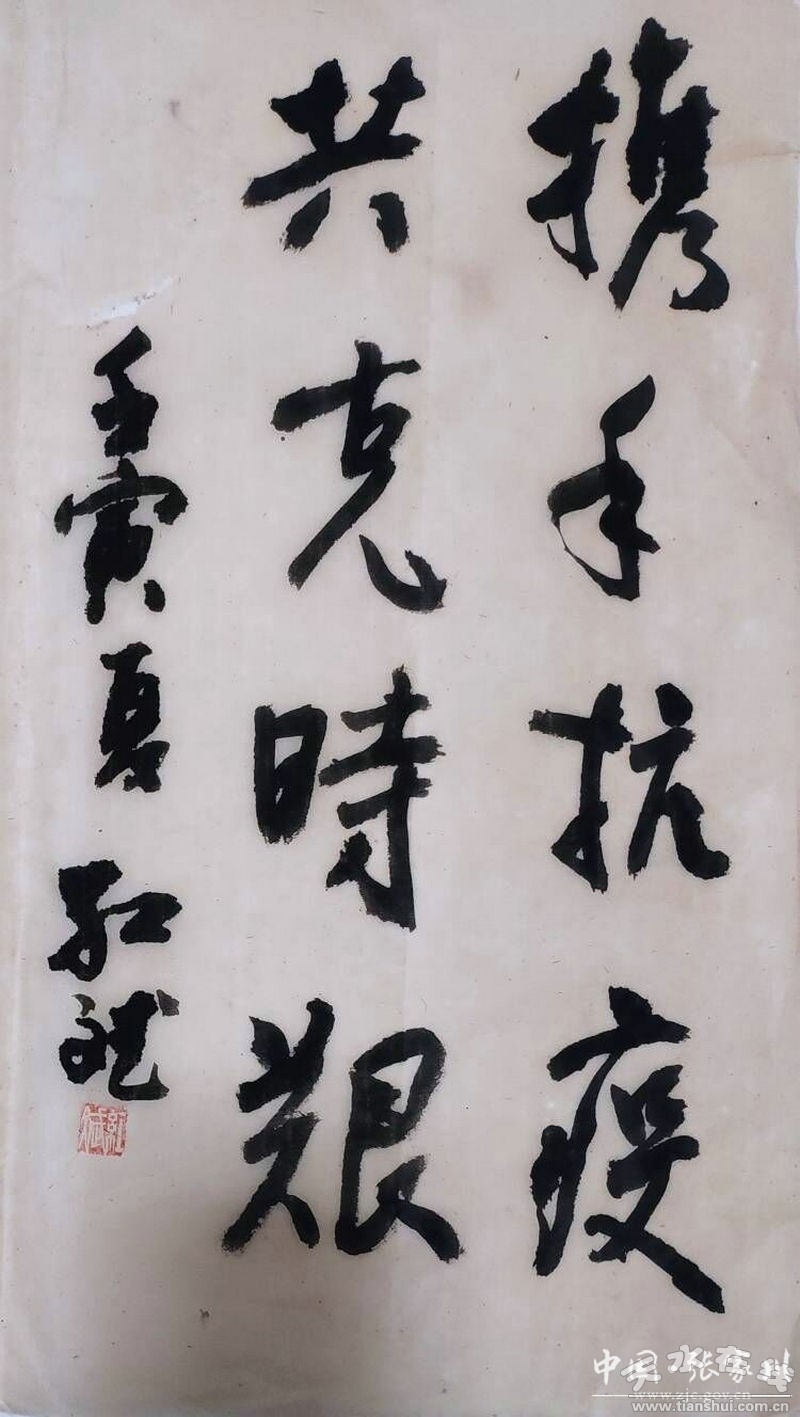 携手抗疫
共克時艱
壬寅夏 红斌
中国 张家川
www.zjc.gov.cn
www.tianshui.com.cn